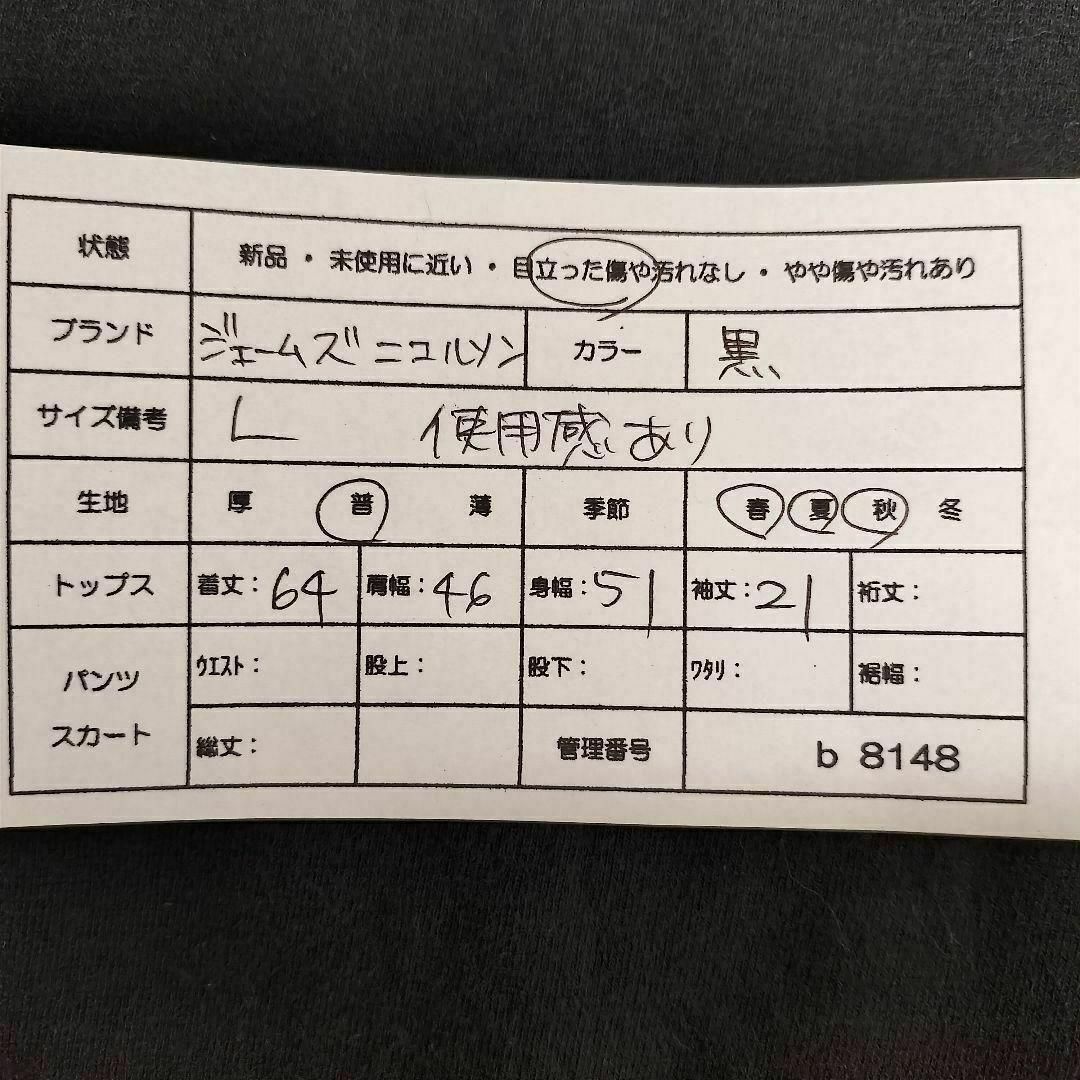 状態 新品 ・ 未使用に近い ・ 目立った傷や汚れなし ・ やや傷や汚れあり
ブランド ジェームズニコルソン カラー 黒
サイズ備考 L 使用感あり
生地 厚 普 薄 季節 春 夏 秋 冬
トップス 着丈:64 肩幅:46 身幅:51 袖丈:21 裄丈:
パンツ スカート ウエスト: 股上: 股下: ワタリ: 裾幅:
総丈: 管理番号 b 8148